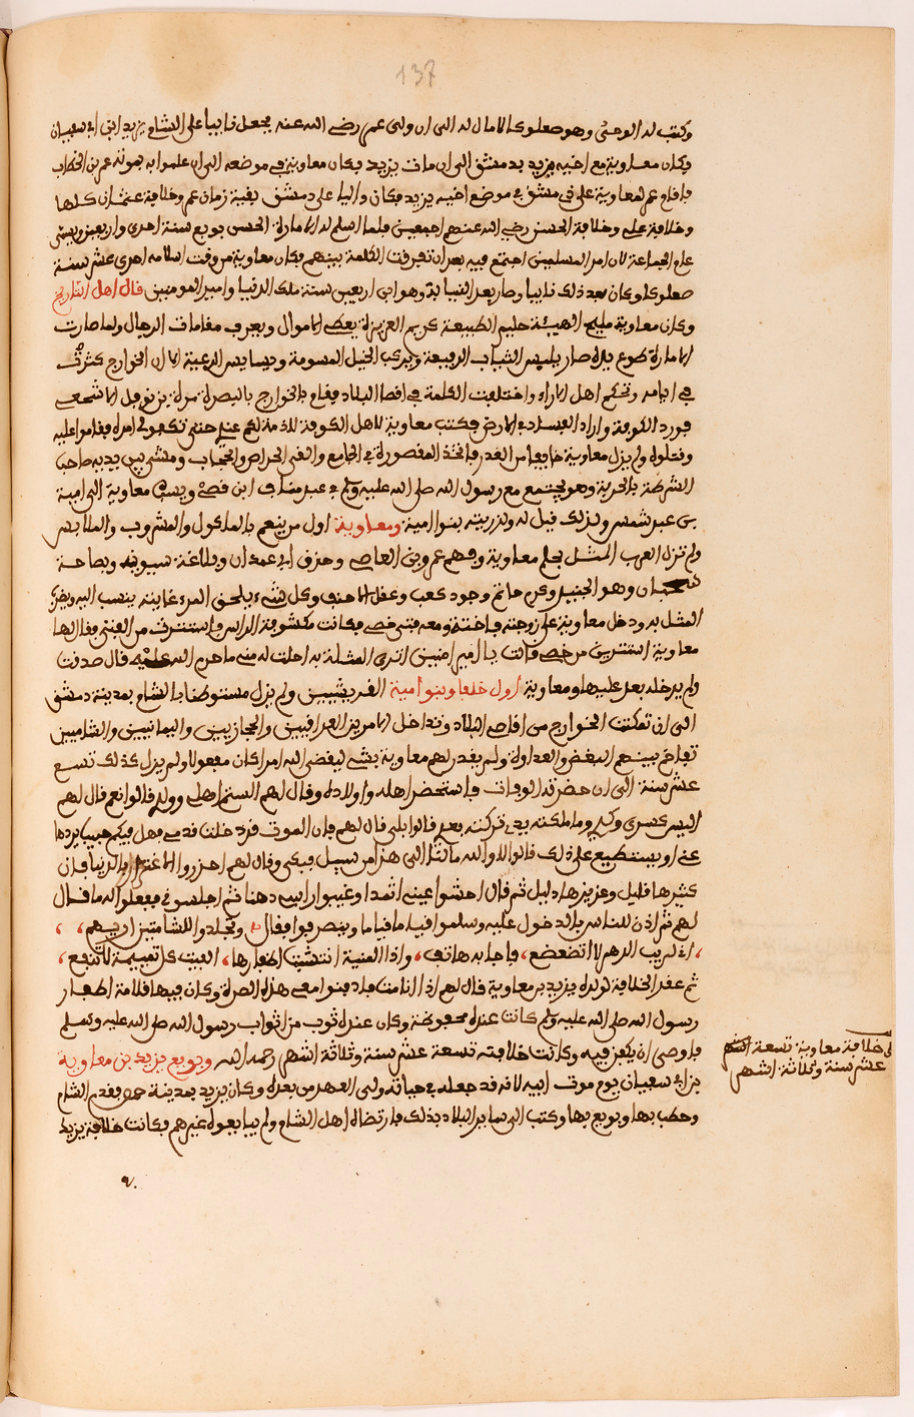 137
وكتب له الوحي وهو صعلوك لا مال له الى ان ولى عمر رضي الله عنه فجعل نايبا على الشام يزيد ابن ابي سفيان
فكان معاوية مع اخيه يزيد بدمشق الى ان مات يزيد فكان معاوية في موضعه الى ان علموا به بموته عمر بن الخطاب
فاقام عمر لمعاوية على دمشق في موضع اخيه يزيد فكان واليا على دمشق بقية زمان عمر وخلافة عثمان كلها
وخلافة علي وخلافة الحسن رضي الله عنهم اجمعين فلما اسلم له الامارة الحسن بويع سنة احدى واربعين ويسمى
عام الجماعة لان امر المسلمين اجتمع فيه بعد ان تفرقت الكلمة بينهم فكان معاوية من وقت اسلامه احدى عشر سنة
صعلوكا وكان بعد ذلك نايبا وصار بعد النيابة وهو ابن اربعين سنة ملك الدنيا وامير المومنين قال اهل التاريخ
وكان معاوية مليح الهيئة حليم الطبيعة كريم الغريزة يعطي الاموال ويعرف مقامات الرجال ولما صارت
الامارة طوع يده صار يلبس الثياب الرفيعة ويركب الخيل المسومة ويسايس الرعية الا ان الخوارج كثرت
في ايامه وتحكم اهل الاراء واختلفت الكلمة في اقصا البلاد فقام بالخوارج بالبصرة مرة بن نوفل الاشجعي
فورد الكوفة واراد الفساد في الارض فكتب معاوية لاهل الكوفة لا ذمة لكم عندي حتى تكفوني امره فقاموا عليه
وقتلوه ولم يزل معاوية خايفا من الغدر فاتخذ المقصورة في الجامع والقى الحراس والحجاب ومشى بين يديه صاحب
الشرطة بالحربة وهو يجتمع مع رسول الله صلى الله عليه وسلم في عبد مناف ابن قصي وينسب معاوية الى امية
بن عبد شمس ولذلك قيل له ولذريته بنوا امية ومعاوية اول من ينعم بالماكول والمشروب والملابس
ولم تزل العرب المثل بحلم معاوية وفهم عمرو بن العاصي وحزف ابي عمدان وبلاغة سيبويه وفصاحة
سحبان وهو الجنيل وكرم حاتم وجود كعب وعقل الاحنف وكل شيء يلحق المرء غايته ينسب اليه ويضرب
المثل به ودخل معاوية على زوجته فاختة ومعه فتى خصي فكانت مكشوفة الراس فاستترت من الفتى فقال لها
معاوية اتستترين من خصي فقالت يا امير المومنين اترى المثلة به احلت له منه ما حرم الله عليه قال صدقت
ولم يدخله بعد عليها ومعاوية اول خلفاء بنو امية القريشيين ولم يزل مستوطنا بالشام بمدينة دمشق
الى ان تمكنت الخوارج من اقاصي البلاد وتداخل الامر بين العراقيين والحجازيين واليمانيين والشاميين
تفاقم بينهم البغض والعداوة ولم يقدر لهم معاوية بشيء ليقضي الله امرا كان مفعولا ولم يزل كذلك تسع
عشر سنة الى ان حضرته الوفات فاستحضر اهله واولاده وقال لهم الستم اهلي وولدي قالوا نعم قال لهم
اليس كسرى وكدي وما ملكته يدي تركته بعدي قالوا بلى قال لهم فان الموت قد دخلت قدمي فهل فيكم حبيب يردها
عني او يستطيع على ذلك قالوا لا والله مالنا الى هذا من سبيل فبكى وقال لهم احذروا الاغترار بالدنيا فان
كثيرها قليل وعزيزها ذليل ثم قال احشوا عيني اثمدا وغيبوا راسي دهنا ثم اجلسوني ففعلوا له ما قال
لهم ثم اذن للناس بالدخول عليه وسلموا قياما قياما وينصرفوا فقال وتجلدوا للشامتين اريهم
اني لريب الدهر لا اتضعضع فاجابه هاتف واذا المنية انشبت اظفارها الفيت كل تميمة لا تنفع
ثم عقد الخلافة لولده يزيد بن معاوية قال لهم اذا انا مت فادفنوا معي هذه الصرة وكان فيها قلامة اظفار
رسول الله صلى الله عليه وسلم كانت عنده محفوظة وكان عنده ثوب من اثواب رسول الله صلى الله عليه وسلم
فاوصى ان يكفن فيه وكانت خلافته تسعة عشر سنة وثلاثة اشهر رحمه الله وبويع يزيد بن معاوية
بن ابي سفيان يوم موت ابيه لانه قد جعله في حياته ولى العهد من بعده وكان يزيد بمدينة حمص فقدم الشام
وخطب بها وبويع بها وكتب الى ساير البلاد بذلك فارتضاه اهل الشام ولم يبايعوه غيرهم فكانت خلافة يزيد
خلافة معاوية تسعة
عشر سنة وثلاثة اشهر